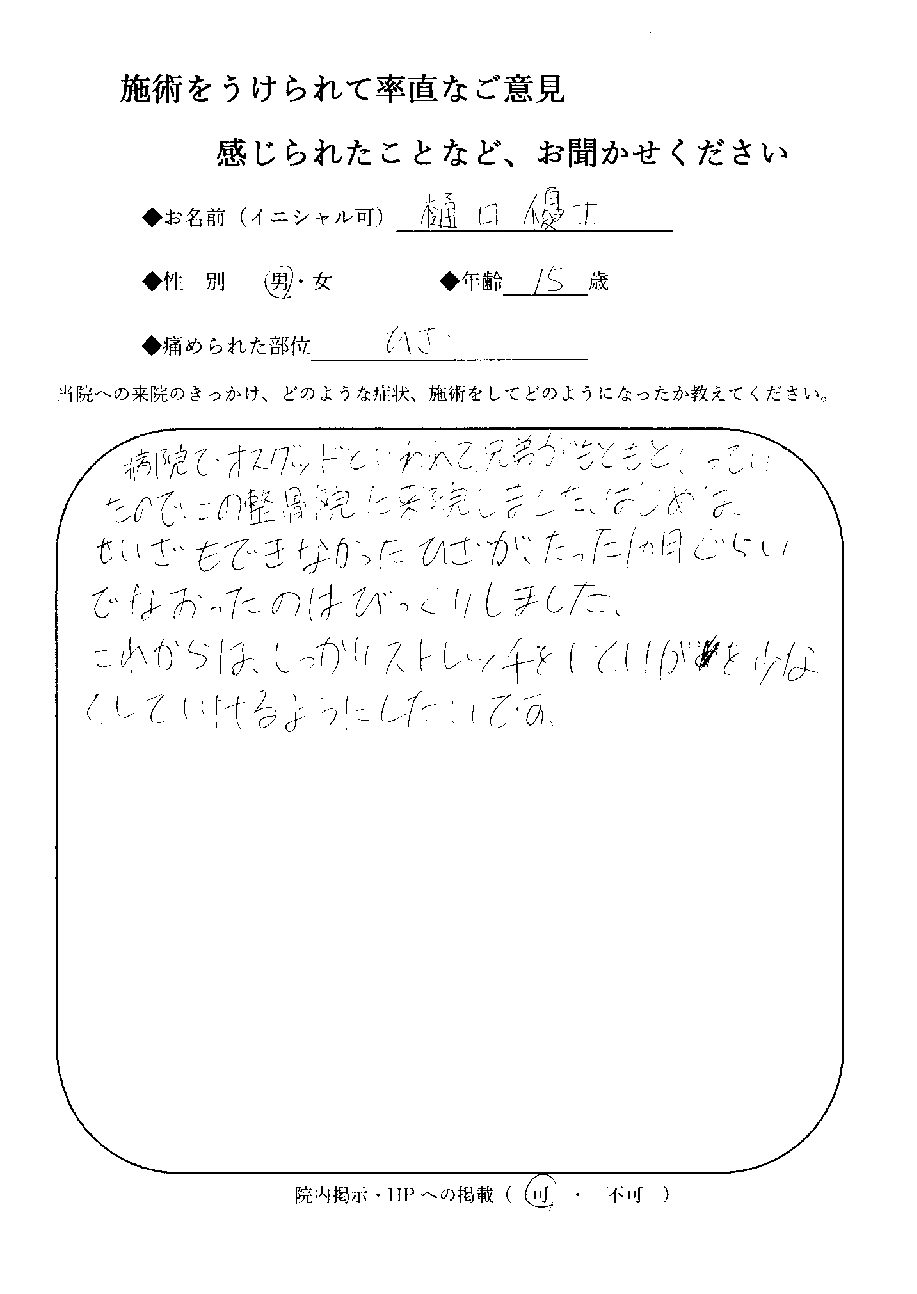 施術をうけられて率直なご意見
感じられたことなど、お聞かせください
◆お名前（イニシャル可） 樋口 優士
◆性 別 男・女 ◆年齢 15 歳
◆痛められた部位 ひざ
当院への来院のきっかけ、どのような症状、施術をしてどのようになったか教えてください。
病院でオスグッドといわれて兄弟がもともといってい
たのでこの整骨院に来院しました。はじめは、
せいざもできなかったひざが、たった1ヵ月ぐらい
でなおったのはびっくりしました。
これからは、しっかりストレッチをしてけがを少な
くしていけるようにしたいです。
院内掲示・HPへの掲載（ 可 ・ 不可 ）